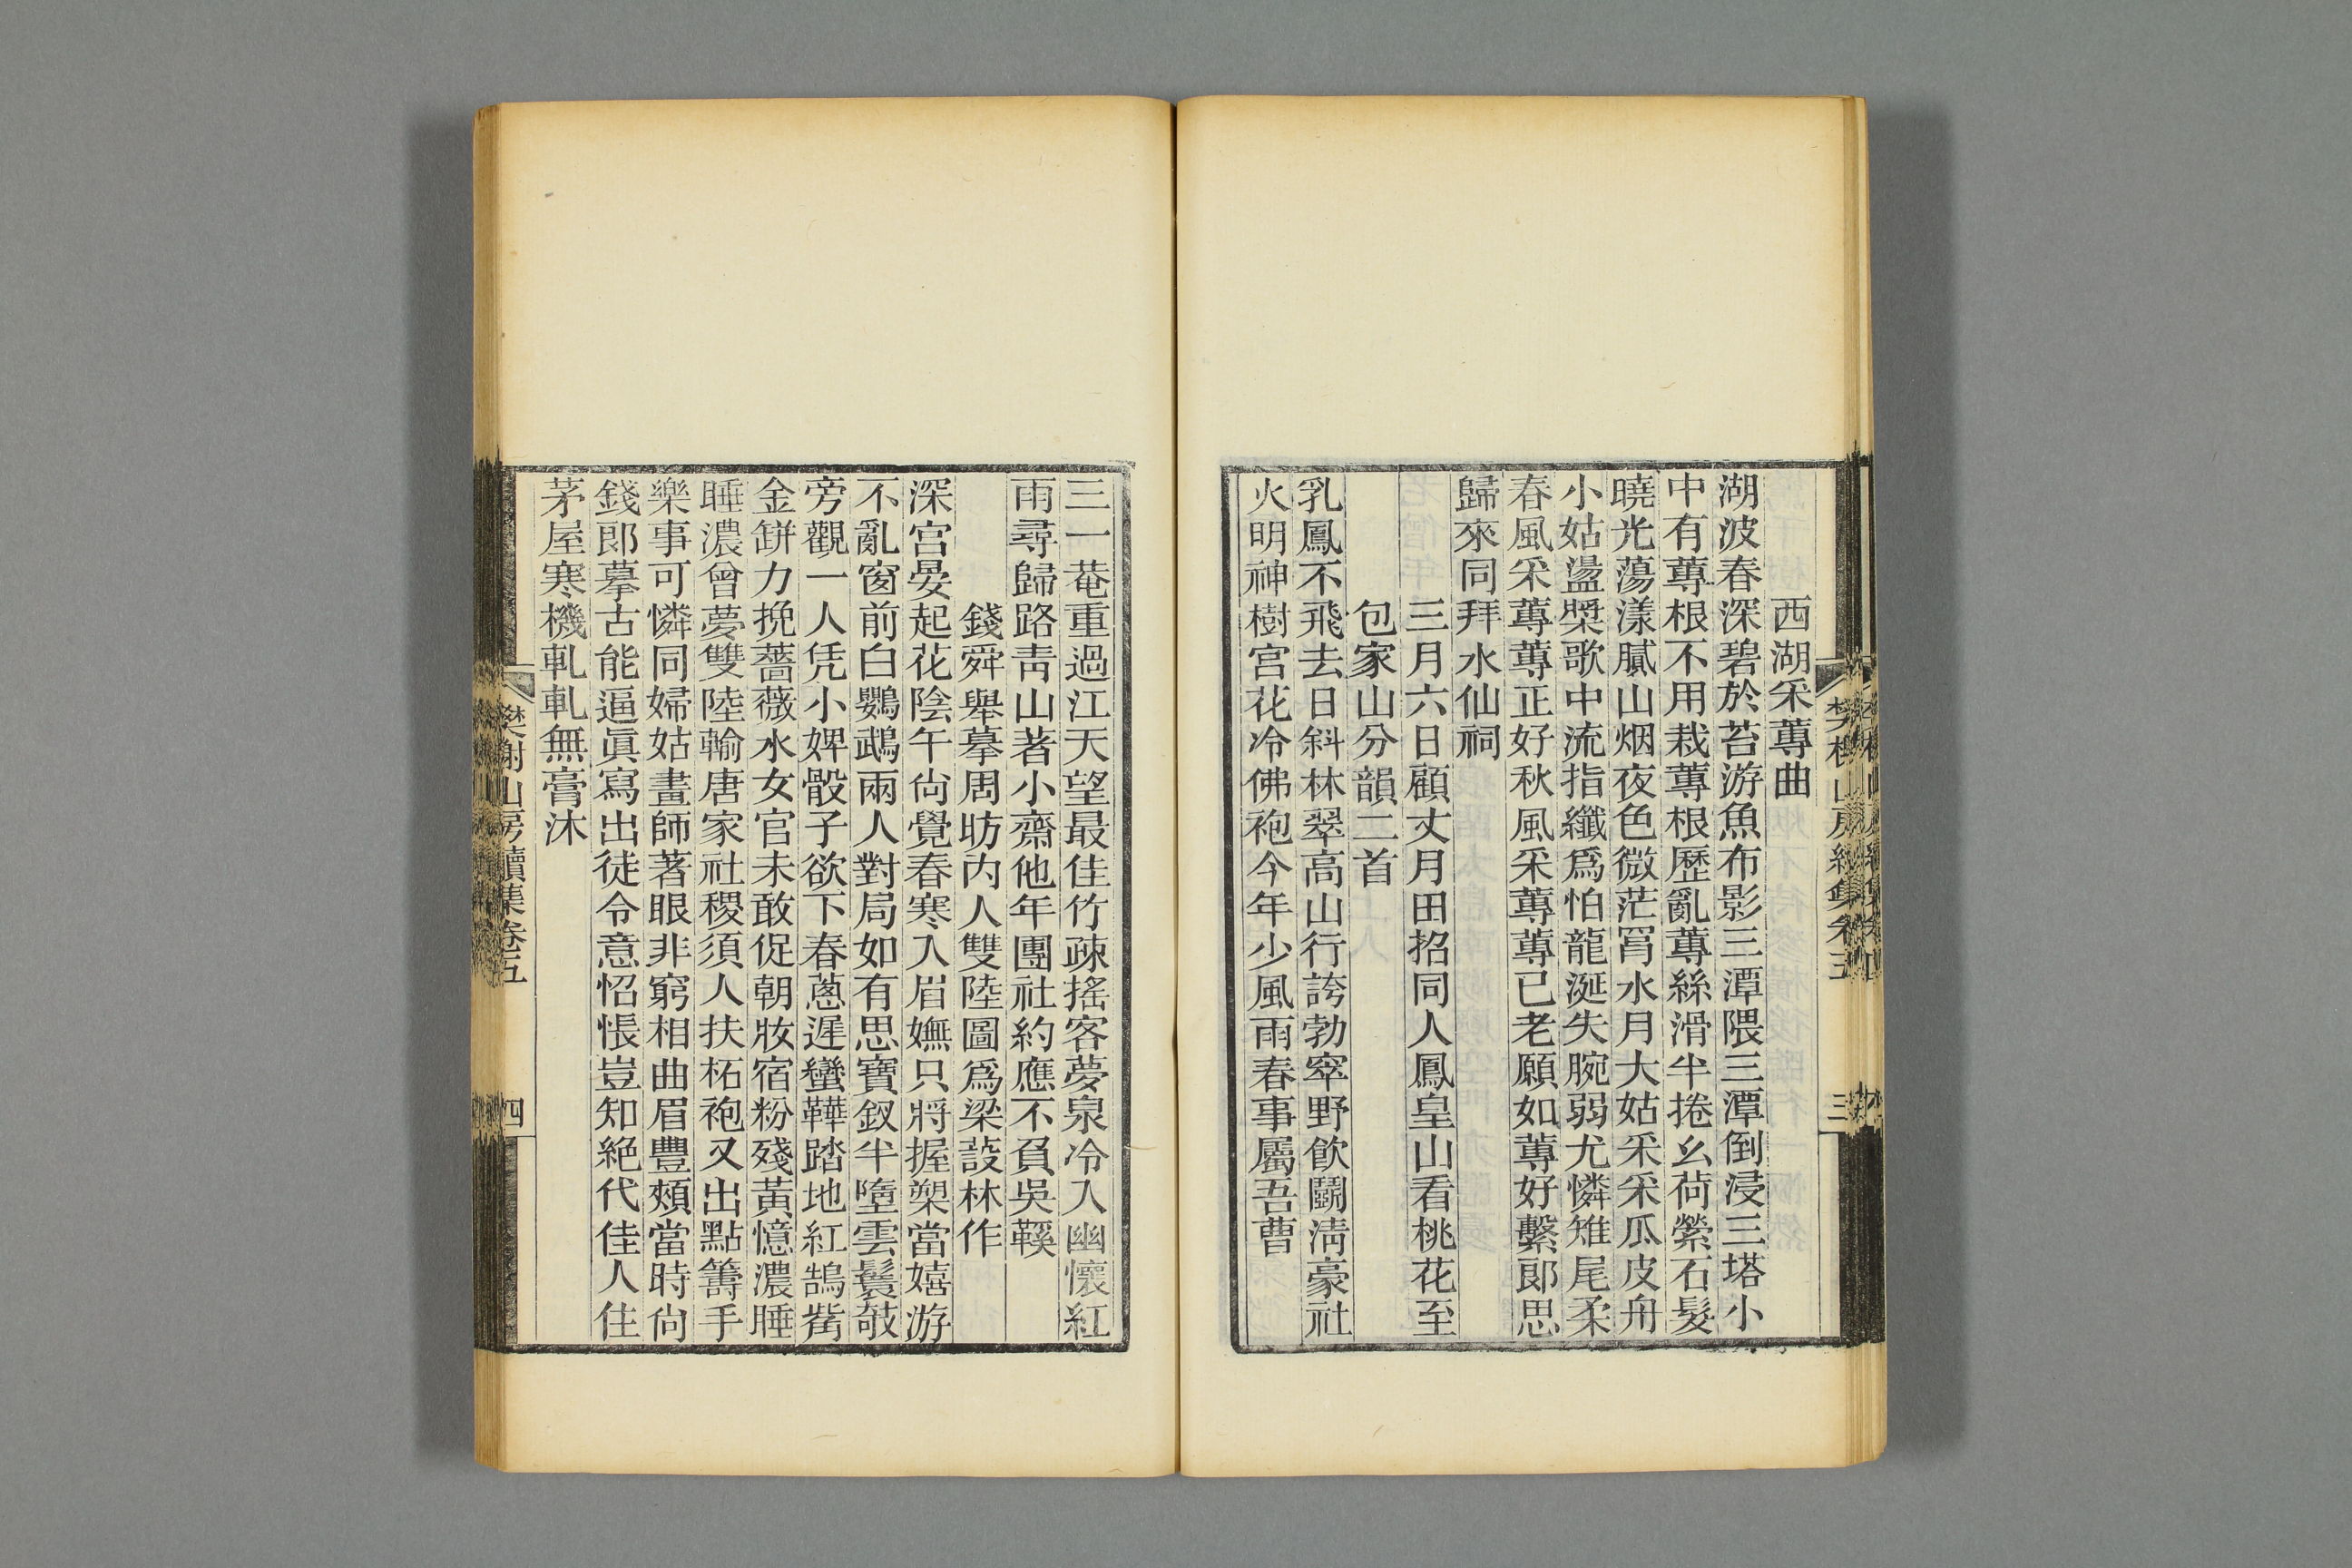 西湖采蓴曲
湖波春深碧於苔游魚布影三潭隈三潭倒浸三塔小
中有蓴根不用栽蓴根歷亂蓴絲滑半捲幺荷縈石髮
曉光蕩漾膩山烟夜色微茫罥水月大姑采采瓜皮舟
小姑盪槳歌中流指纖爲怕龍涎失腕弱尤憐雉尾柔
春風采蓴蓴正好秋風采蓴蓴已老願如蓴好繫郎思
歸來同拜水仙祠
三月六日顧丈月田招同人鳳皇山看桃花至
包家山分韻二首
乳鳳不飛去日斜林翠高山行誇勃窣野飲鬭淸豪社
火明神樹宮花冷佛袍今年少風雨春事屬吾曹
三
三一菴重過江天望最佳竹疎搖客夢泉冷入幽懷紅
雨尋歸路靑山著小齋他年團社約應不負吳鞵
錢舜舉摹周昉内人雙陸圖爲梁蔎林作
深宮晏起花陰午尙覺春寒入眉嫵只將握槊當嬉游
不亂窗前白鸚鵡兩人對局如有思寶釵半墮雲鬟攲
旁觀一人凭小婢骰子欲下春蔥遲蠻鞾踏地紅鵠觜
金缾力挽薔薇水女官未敢促朝妝宿粉殘黃憶濃睡
睡濃曾夢雙陸輸唐家社稷須人扶柘袍又出點籌手
樂事可憐同婦姑畫師著眼非窮相曲眉豐頰當時尙
錢郎摹古能逼眞寫出徒令意怊悵豈知絶代佳人住
茅屋寒機軋軋無膏沐
樊榭山房續集卷五
四